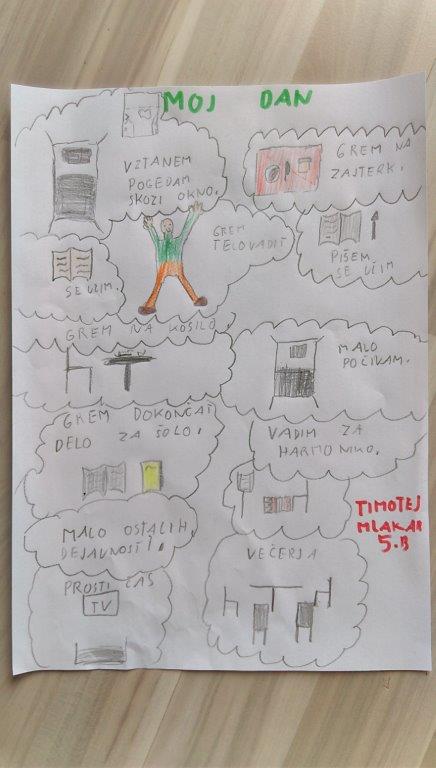 MOJ DAN
VZTANEM
POGEDAM
SKOZI OKNO.
GREM NA
ZAJTERK.
GREM
TELOVADIT
PIŠEM,
SE UČIM
SE UČIM.
GREM NA KOSILO
MALO
POČIVAM.
GREM DOKONČAT
DELO ZA ŠOLO.
VADIM ZA
HARMONIKO.
TIMOTEJ
MLAKAR
5.B
MALO OSTALIH
DEJAVNOSTI.
VEČERJA
PROSTI ČAS
TV